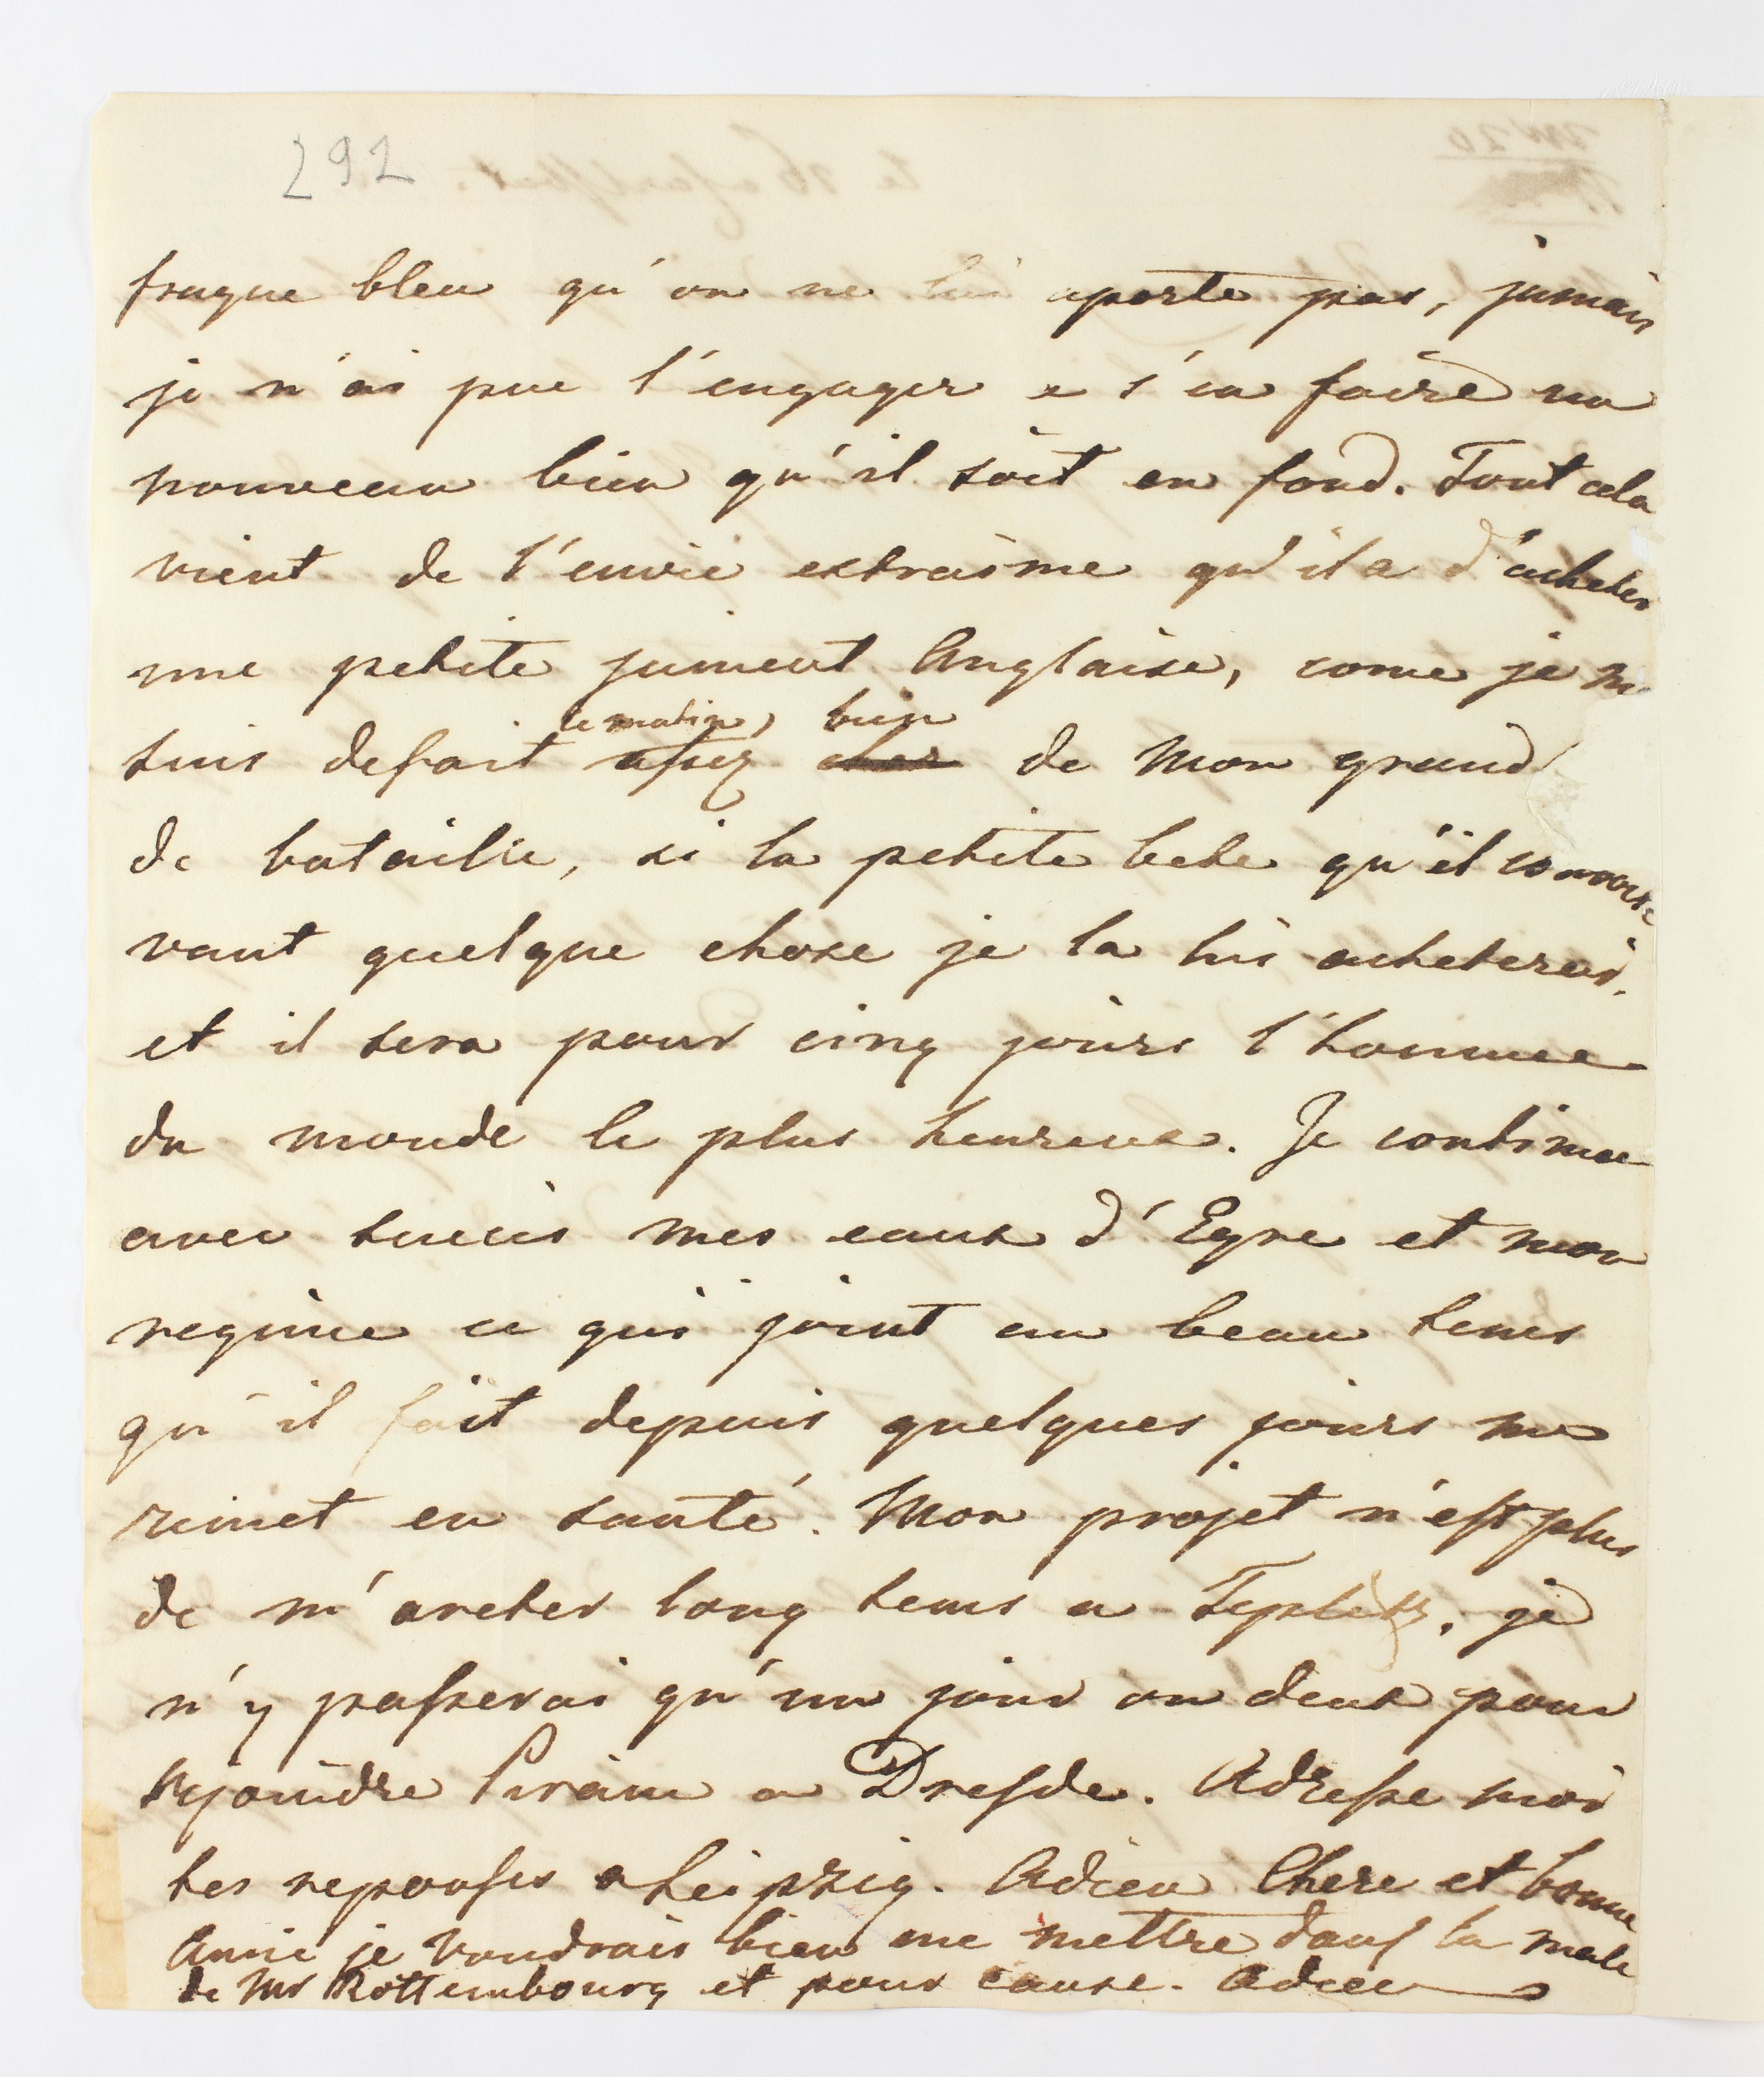 292
fraque bleu qu'on ne lui aporte pas, jamais
je n'ai pue l'engager a s'en faire un
nouveau bien qu'il soit en fond. Tout cela
vient de l'envie extraisme qu'il a d'acheter
une petite jument Anglaise, come je m
suis defait assez cher de mon grand
le matin, bien
de bataille, si la petite bete qu'il convoite
vaut quelque chose je la lui acheterai,
et il sera pour cinq jours l'homme
du monde le plus heureux. Je continue
avec succés mes eaux d'Egre et mon
regime ce qui joint au beau tems
qu'il fait depuis quelques jours me
remet en santé. Mon projet n'est plus
de m'areter long tems a Teplitz, je
n'y passerai qu'un jour ou deux pour
rejoindre a Dresde. Adresse moi
tes reponses a Leipzig. Adieu Chere et bonne
Amie je voudrais bien me mettre dans la male
de Mr Rottembourg et pour cause. Adieu